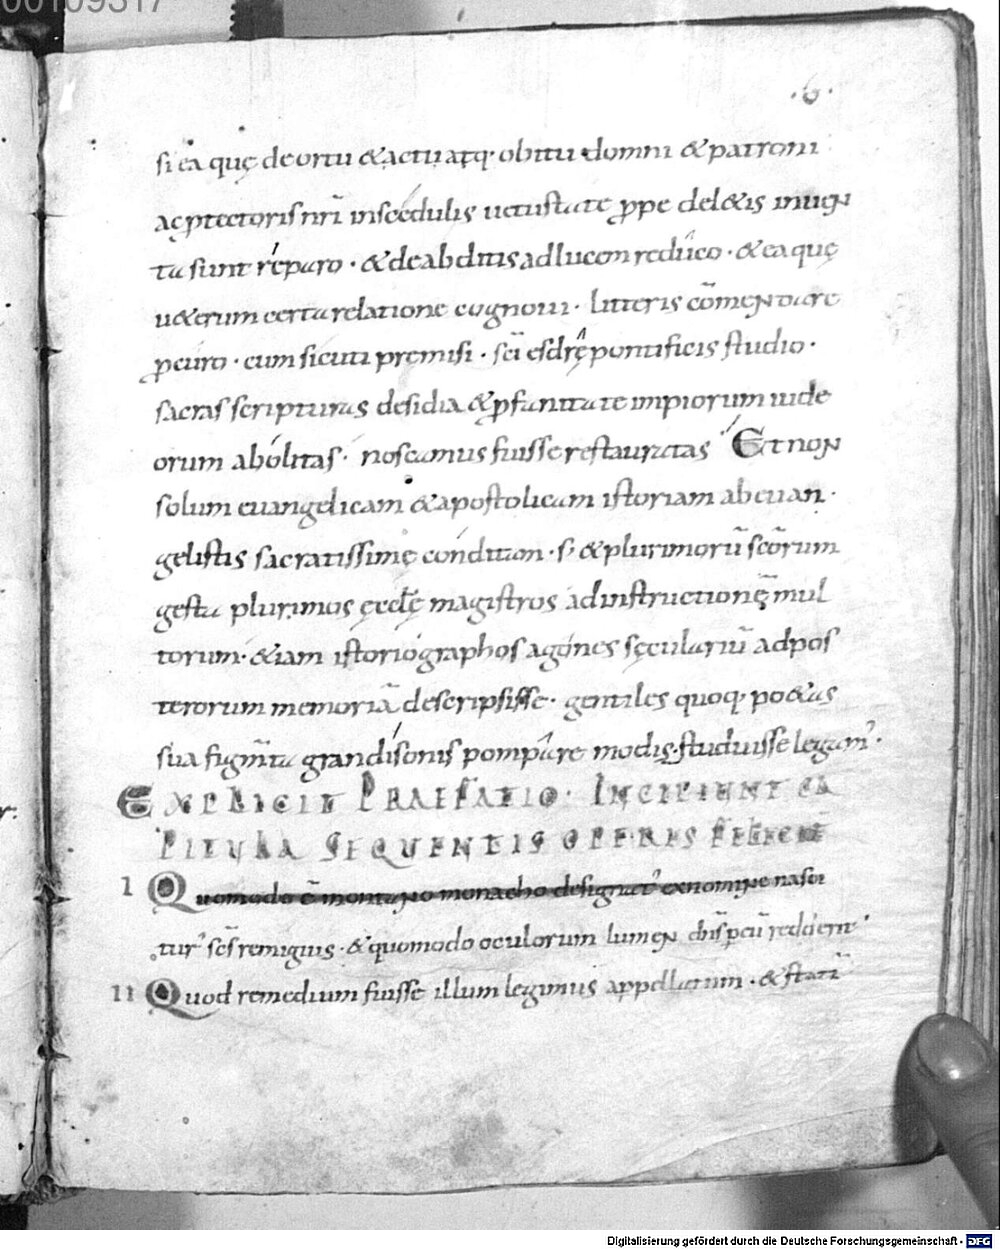 00109317
.6.
si ea quę de ortu & actu atq; obitu domni & patroni
ac ꝓtectoris nr̄i in scedulis uetustate ꝓpe del&is inuen
ta sunt reparo · & de abditis ad lucem reduco · & ea quę
u&erum certa relatione cognoui · litteris cōmendare
ꝓcuro · cum sicuti premisi · sc̄i esdrę pontificis studio ·
sacras scripturas desidia & ꝓfanitate impiorum iude
orum abolitas · noscamus fuisse restauratas Et non
solum euangelicam & apostolicam istoriam ab euan ·
gelistis sacratissime conditam · s; & plurimorū sc̄orum
gesta plurimos ęccłę magistros ad instructionę̄ mul
torum · &iam istoriographos agones sęculariū ad pos
terorum memoriā descripsisse · gentiles quoq; po&as
sua figm̄ta grandisonis pompare modis · studuisse legam᾿ ·
EXPLICIT PRAEFATIO · INCIPIUNT CA
PITULA SEQUENTIS OPERIS FELICIT̄
I Quomodo a montano monacho designat᾿ ex nomine nasci
tur᾿ sc̄s remigius · & quomodo oculorum lumen
II Quod remedium fuisse illum legimus appellatum · & stati
Digitalisierung gefördert durch die Deutsche Forschungsgemeinschaft - DFG